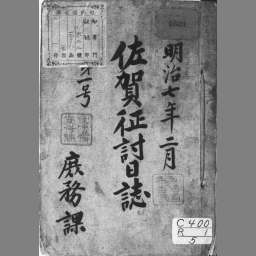 明治七年二月
佐賀征討日誌
第一号
庶務課
C400
R 1
5